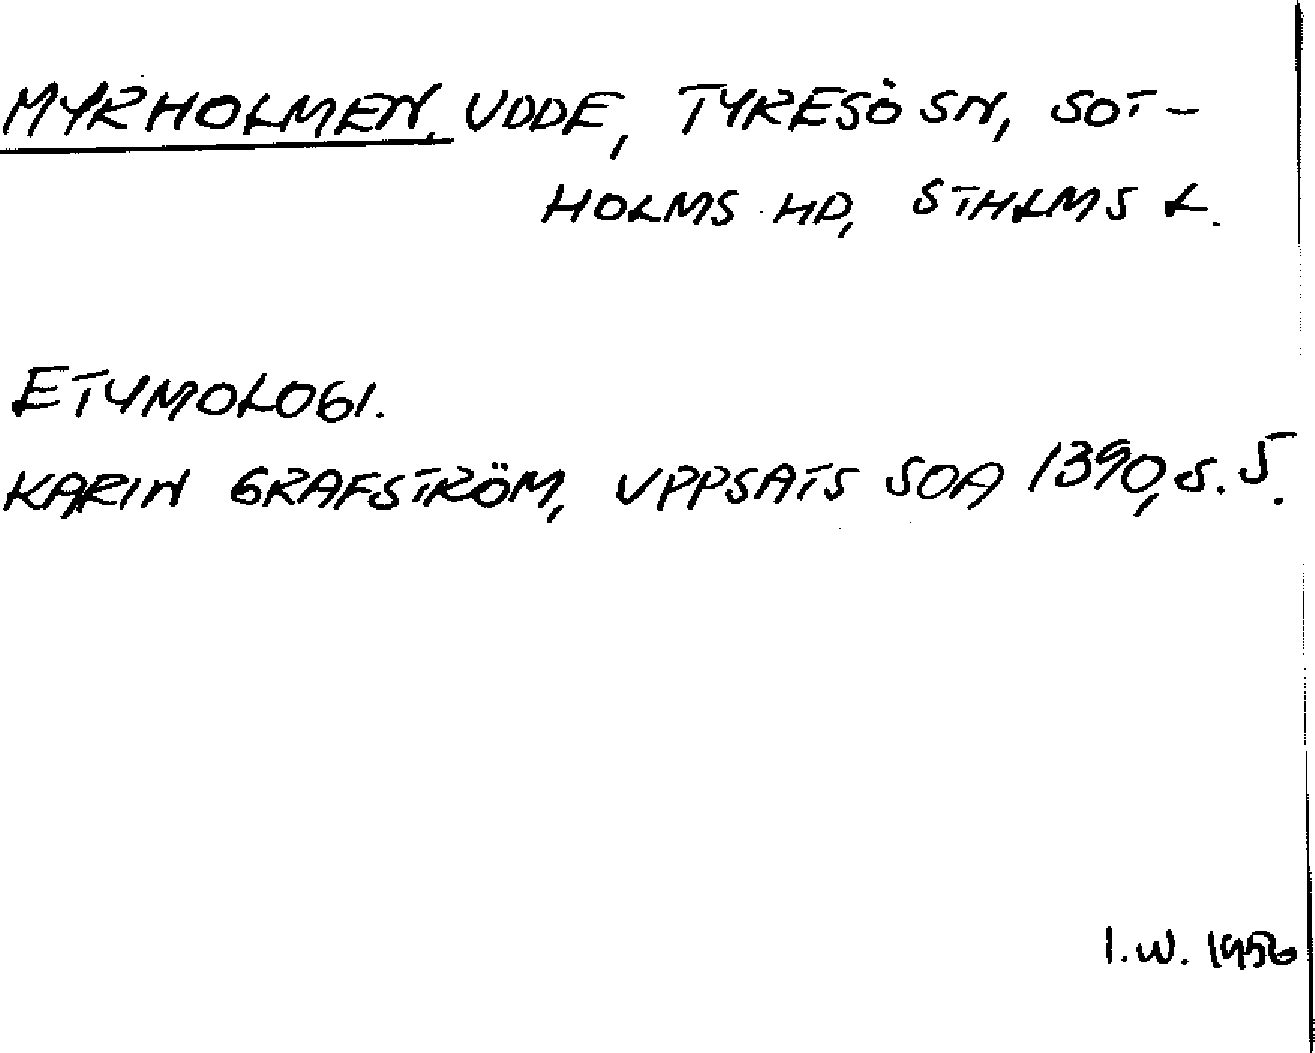 MYRHOLMEN, UDDE, TYRESÖ SN, SOT-
HOLMS HD, STHLMS L.
ETYMOLOGI.
KARIN GRAFSTRÖM, UPPSATS SOA 1390, S. 5.
I.W. 1956